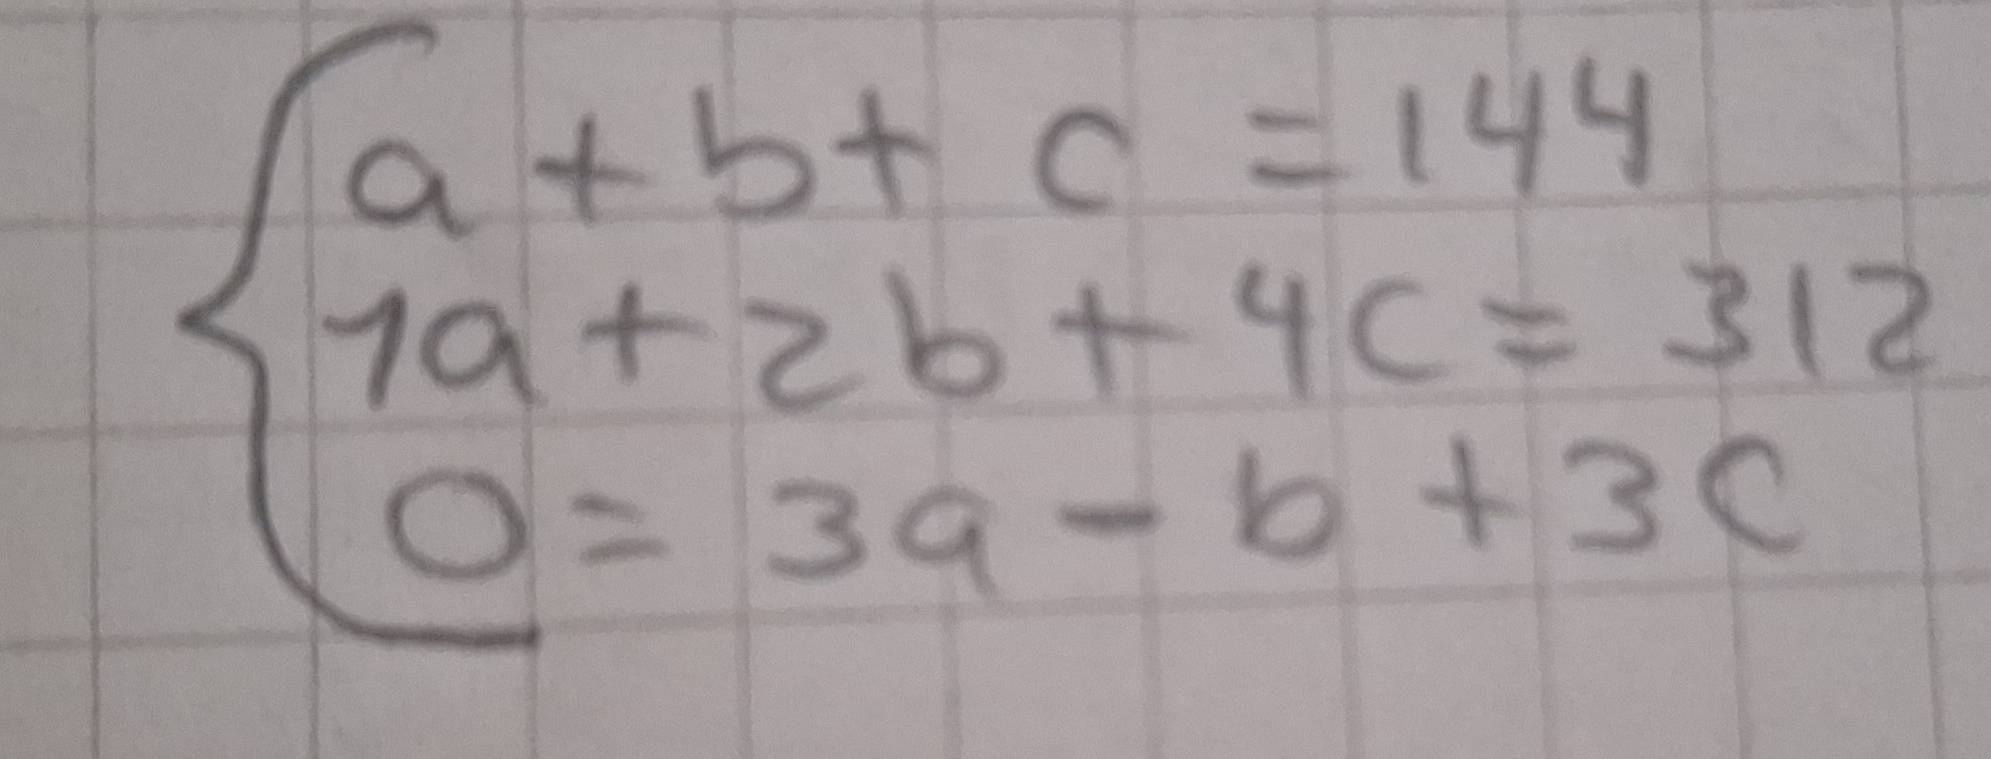 a + b + c = 144
1a + 2b + 4c = 312
0 = 3a - b + 3c